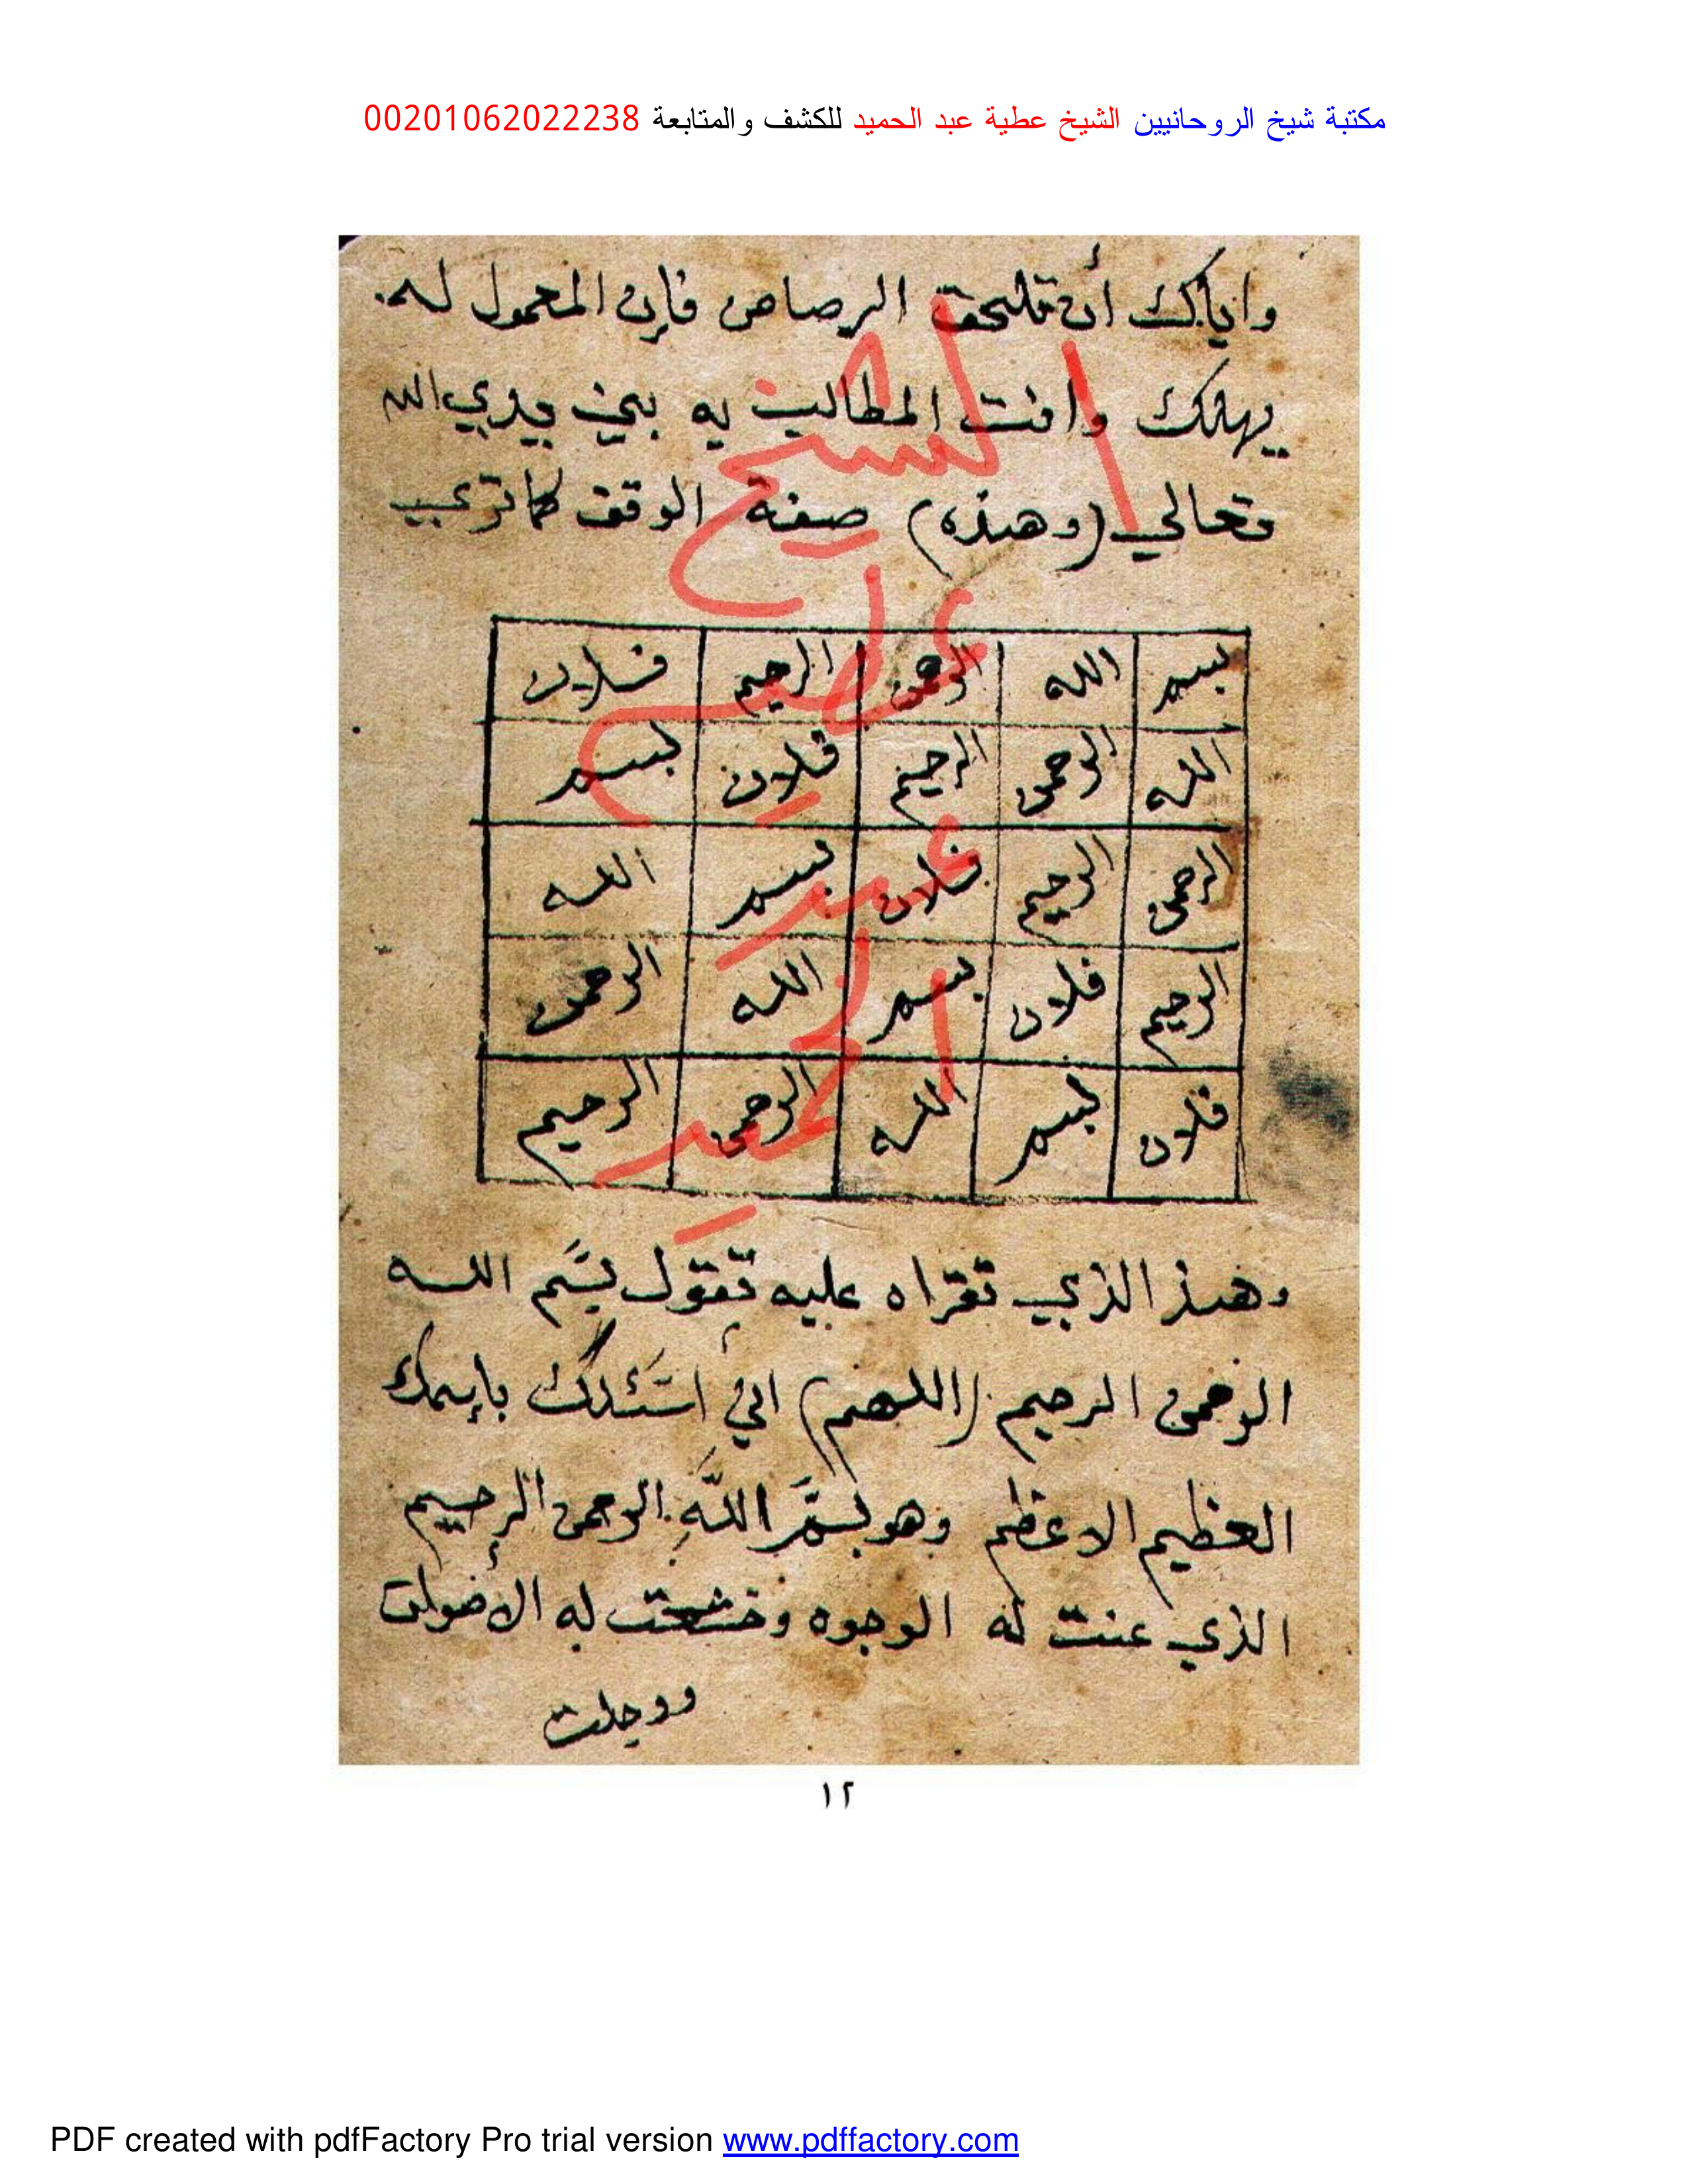 مكتبة شيخ الروحانيين الشيخ عطية عبد الحميد للكشف والمتابعة 00201062022238
واياك أن تلحق الرصاص فإن المعمول له
يهلك وانت المطالب به بين يدي الله
تعالي (وهذه) صفة الوقف كما تري
بسم الله الرحمن الرحيم فلان
الله الرحمن الرحيم فلان بسم
الرحمن الرحيم فلان بسم الله
الرحيم فلان بسم الله الرحمن
فلان بسم الله الرحمن الرحيم
وهذ الذي تقراه عليه تقول بسم الله
الرحمن الرحيم (اللهم) اني استئلك بإسمك
العظيم الاعظم وهو بسم الله الرحمن الرحيم
الذي عنت له الوجوه وخشعت له الاصوات
ووجلت
الشيخ
عطية
عبد
الحميد
١٢
PDF created with pdfFactory Pro trial version www.pdffactory.com